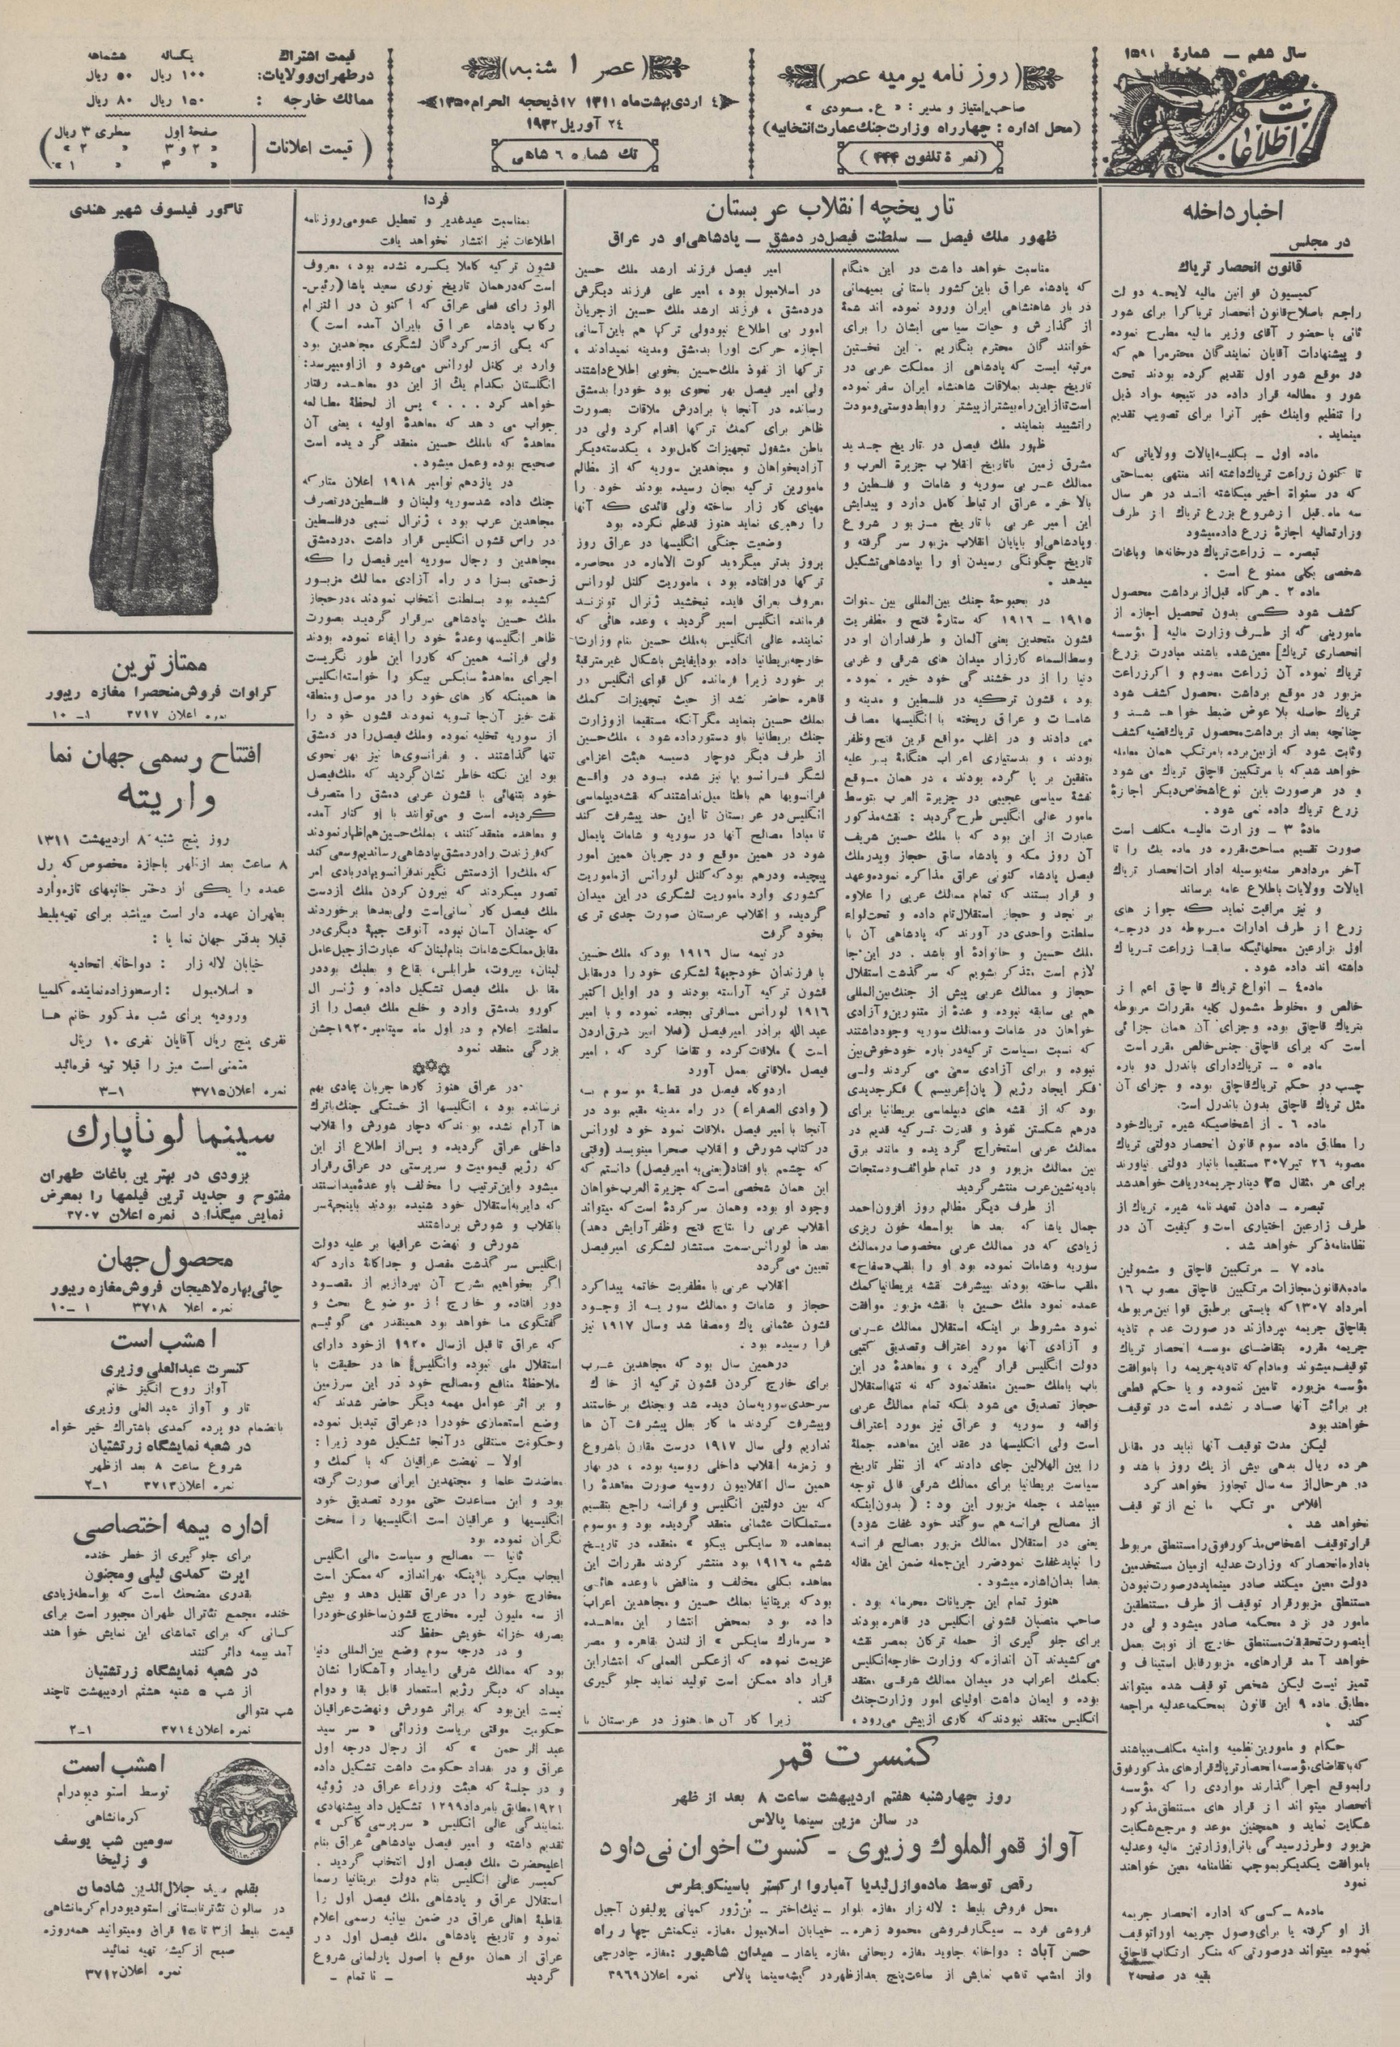 سال ششم — شمارهٔ ۱۵۹۱
اطلاعات
(روزنامه یومیه عصر)
صاحب امتیاز و مدیر: « ع. مسعودی »
(محل اداره: چهارراه وزارت جنك عمارت انتخابیه)
(نمرهٔ تلفون ۴۴۴)
(عصر ۱ شنبه)
۴ اردی بهشت ماه ۱۳۱۱ ۱۷ ذیحجه الحرام ۱۳۵۰
۲۴ آوریل ۱۹۳۲
تك شماره ۶ شاهی
قیمت اشتراك یکساله ششماهه
در طهران و ولایات: ۱۰۰ ریال ۵۰ ریال
ممالك خارجه: ۱۵۰ ریال ۸۰ ریال
(قیمت اعلانات
صفحهٔ اول سطری ۳ ریال
« ۲ و ۳ « ۲ »
« ۴ « ۱ »)
اخبار داخله
در مجلس
قانون انحصار تریاك
کمیسیون قوانین مالیه لایحه دولت
راجع باصلاح قانون انحصار تریاك را برای شور
ثانی با حضور آقای وزیر مالیه مطرح نموده
و پیشنهادات آقایان نمایندگان محترم را هم که
در موقع شور اول تقدیم کرده بودند تحت
شور و مطالعه قرار داده در نتیجه مواد ذیل
را تنظیم و اینك خبر آنرا برای تصویب تقدیم
مینماید.
ماده اول — بکلیه ایالات و ولایاتی که
تا کنون زراعت تریاك داشته اند منتهی بمساحتی
که در سنواة اخیر میکاشته اند در هر سال
سه ماه قبل از شروع بزرع تریاك از طرف
وزارت مالیه اجازهٔ زرع داده میشود
تبصره — زراعت تریاك در خانه ها و باغات
شخصی بکلی ممنوع است.
ماده ۲ — هر گاه قبل از برداشت محصول
کشف شود کسی بدون تحصیل اجازه از
مامورینی که از طرف وزارت مالیه [مؤسسه
انحصاری تریاك] معین شده باشند مبادرت بزرع
تریاك نموده آن زراعت معدوم و اگر زراعت
مزبور در موقع برداشت محصول کشف شود
تریاك حاصله بلا عوض ضبط خواهد شد و
چنانچه بعد از برداشت محصول تریاك قضیه کشف
و ثابت شود که از بین برده با مرتکب همان معامله
خواهد شد که با مرتکبین قاچاق تریاك می شود
و در هر صورت باین نوع اشخاص دیگر اجازهٔ
زرع تریاك داده نمی شود.
مادهٔ ۳ — وزارت مالیه مکلف است
صورت تقسیم مساحت مقرره در ماده یك را تا
آخر مرداد هر سنه بوسیله ادارات انحصار تریاك
ایالات و ولایات باطلاع عامه برساند
و نیز مراقبت نماید که جواز های
زرع از طرف ادارات مربوطه در درجه
اول بزارعین محلهائیکه سابقا زراعت تریاك
داشته اند داده شود.
ماده ۴ — انواع تریاك قاچاق اعم از
خالص و مخلوط مشمول کلیه مقررات مربوطه
بتریاك قاچاق بوده و جزای آن همان جزائی
است که برای قاچاق جنس خالص مقرر است
ماده ۵ — تریاك دارای باندرل دو باره
چسب در حکم تریاك قاچاق بوده و جزای آن
مثل تریاك قاچاق بدون باندرل است.
ماده ۶ — از اشخاصیکه شیره تریاك خود
را مطابق ماده سوم قانون انحصار دولتی تریاك
مصوبه ۲۶ تیر ۳۰۷ مستقیما بانبار دولتی نیاورند
برای هر مثقال ۲۵ دینار جریمه دریافت خواهد شد
تبصره — دادن تعهدنامه شیره تریاك از
طرف زارعین اختیاری است و کیفیت آن در
نظامنامه ذکر خواهد شد.
ماده ۷ — مرتکبین قاچاق و مشمولین
ماده ۸ قانون مجازات مرتکبین قاچاق مصوب ۱۶
امرداد ۱۳۰۷ که بایستی برطبق قوانین مربوطه
بقاچاق جریمه بپردازند در صورت عدم تادیه
جریمه مقرره بتقاضای موسسه انحصار تریاك
توقیف میشوند و مادام که تادیه جریمه را با موافقت
مؤسسه مزبوره تامین ننموده و یا حکم قطعی
بر برائت آنها صادر نشده است در توقیف
خواهند بود
لیکن مدت توقیف آنها نباید در مقابل
هر ده ریال بدهی بیش از یك روز باشد و
در هر حال از سه سال تجاوز نخواهد کرد
افلاس مرتکب مانع از توقیف
نخواهد شد.
قرار توقیف اشخاص مذکور فوق را مستنطق مربوط
باداره انحصار که وزارت عدلیه از میان مستخدمین
دولت معین میکند صادر مینماید در صورت نبودن
مستنطق مزبور قرار توقیف از طرف مستنطقین
مامور در نزد محکمه صادر میشود ولی در
اینصورت تحقیقات مستنطق خارج از نوبت بعمل
خواهد آمد قرارهای مزبور قابل استیناف و
تمیز نیست لیکن شخص توقیف شده میتواند
مطابق ماده ۹ این قانون بمحکمه عدلیه مراجعه
کند.
حکام و مامورین نظمیه و امنیه مکلف میباشند
که با تقاضای مؤسسه انحصار تریاك قرارهای مذکور فوق
را بموقع اجرا گذارند مواردی را که مؤسسه
انحصار میتواند از قرار های مستنطق مذکور
شکایت نماید و همچنین موعد و مرجع شکایت
مزبور و طرز رسیدگی بآنرا وزارتین مالیه و عدلیه
با موافقت یکدیگر بموجب نظامنامه معین خواهند
نمود
ماده ۸ — کسی که اداره انحصار جریمه
از او گرفته یا برای وصول جریمه او را توقیف
نموده میتواند در صورتی که منکر ارتکاب قاچاق
بقیه در صفحه ۲
تاریخچه انقلاب عربستان
ظهور ملك فیصل — سلطنت فیصل در دمشق — پادشاهی او در عراق
مناسبت خواهد داشت در این هنگام
که پادشاه عراق باین کشور باستانی بمیهمانی
دربار شاهنشاهی ایران ورود نموده اند شمهٔ
از گذارش و حیات سیاسی ایشان را برای
خوانندگان محترم بنگاریم. این نخستین
مرتبه است که پادشاهی از مملکت عربی در
تاریخ جدید بملاقات شاهنشاه ایران سفر نموده
است تا از این راه بیشتر از پیشتر روابط دوستی و مودت
را تشیید بنمایند.
ظهور ملك فیصل در تاریخ جدید
مشرق زمین با تاریخ انقلاب جزیرة العرب و
ممالك عربی سوریه و شامات و فلسطین و
بالاخره عراق ارتباط کامل دارد و پیدایش
این امیر عربی با تاریخ مزبور شروع
و پادشاهی او با پایان انقلاب مزبور سر گرفته و
تاریخ چگونگی رسیدن او را بپادشاهی تشکیل
میدهد.
در بحبوحهٔ جنك بین المللی بین سنوات
۱۹۱۵ – ۱۹۱۶ که ستارهٔ فتح و مظفریت
قشون متحدین یعنی آلمان و طرفداران او در
وسط السماء کارزار میدان های شرقی و غربی
دنیا را از درخشندگی خود خیره نموده
بود، قشون ترکیه در فلسطین و مدینه و
شامات و عراق ریخته با انگلیسها مصاف
می دادند و در اغلب مواقع قرین فتح و ظفر
بودند، و بدستیاری اعراب هنگامهٔ بر علیه
متفقین بر پا کرده بودند، در همان موقع
نقشهٔ سیاسی عجیبی در جزیرة العرب بتوسط
مامور عالی انگلیس طرح گردید: نقشه مذکور
عبارت از این بود که با ملك حسین شریف
آن روز مکه و پادشاه سابق حجاز و پدر ملك
فیصل پادشاه کنونی عراق مذاکره نموده و عهد
و قرار بستند که تمام ممالك عربی را علاوه
بر نجد و حجاز استقلال تام داده و تحت لواء
سلطنت واحدی در آورند که پادشاهی آن با
ملك حسین و خانوادهٔ او باشد. در این جا
لازم است متذکر بشویم که سر گذشت استقلال
حجاز و ممالك عربی پیش از جنك بین المللی
هم بی سابقه نبوده و عدهٔ از متنورین و آزادی
خواهان در شامات و ممالك سوریه وجود داشتند
که نسبت بسیاست ترکیه در باره خود خوش بین
نبوده و برای آزادی سعی می کردند ولی
فکر ایجاد رژیم (پان اعربیسم) فکر جدیدی
بود که از نقشه های دیپلماسی بریطانیا برای
درهم شکستن نفوذ و قدرت ترکیه قدیم در
ممالك عربی استخراج گردیده و مانند برق
بین ممالك مزبور و در تمام طوائف و دستجات
بادیه نشین عرب منتشر گردید
از طرف دیگر مظالم روز افزون احمد
جمال پاشا که بعدها بواسطه خون ریزی
زیادی که در ممالك عربی مخصوصا در ممالك
سوریه و شامات نموده بود او را بلقب «سفاح»
ملقب ساخته بودند بپیشرفت نقشه بریطانیا کمك
عمده نمود ملك حسین با نقشه مزبور موافقت
نمود مشروط بر اینکه استقلال ممالك عربی
و آزادی آنها مورد اعتراف و تصدیق کتبی
دولت انگلیس قرار گیرد، و معاهدهٔ در این
باب با ملك حسین منعقد نمود که نه تنها استقلال
حجاز تصدیق می شود بلکه تمام ممالك عربی
واقعه و سوریه و عراق نیز مورد اعتراف
است ولی انگلیسها در عقد این معاهده جملهٔ
را بین الهلالین جای دادند که از نظر تاریخ
سیاست بریطانیا برای ممالك شرقی قابل توجه
میباشد، جمله مزبور این بود: (بدون اینکه
از مصالح فرانسه هم سوگند خود غفلت شود)
یعنی در استقلال ممالك مزبور مصالح فرانسه
را نباید غفلت نمود ضرر این جمله ضمن این مقاله
بعدا بدان اشاره میشود.
هنوز تمام این جریانات محرمانه بود.
صاحب منصبان قشونی انگلیس در قاهره بودند
برای جلوگیری از حمله ترکان بمصر نقشه
می کشیدند آن اندازه که وزارت خارجه انگلیس
بکمك اعراب در میدان ممالك شرقی معتقد
بوده و ایمان داشت اولیای امور وزارت جنك
انگلیس معتقد نبودند که کاری از پیش می رود،
امیر فیصل فرزند ارشد ملك حسین
در اسلامبول بود، امیر علی فرزند دیگرش
در دمشق، فرزند ارشد ملك حسین از جریان
امور بی اطلاع نبود ولی ترکها هم باین آسانی
اجازه حرکت او را بدمشق و مدینه نمیدادند،
ترکها از نفوذ ملك حسین بخوبی اطلاع داشتند
ولی امیر فیصل بهر نحوی بود خود را بدمشق
رسانده در آنجا با برادرش ملاقات بصورت
ظاهر برای کمك ترکها اقدام کرد ولی در
باطن مشغول تجهیزات کامل بود، یکدسته دیگر
آزادیخواهان و مجاهدین سوریه که از مظالم
مامورین ترکیه بجان رسیده بودند خود را
مهیای کار زار ساخته ولی قائدی که آنها
را رهبری نماید هنوز قد علم نکرده بود
وضعیت جنگی انگلیسها در عراق روز
بروز بدتر میگردید کوت الاماره در محاصره
ترکها در افتاده بود، ماموریت کلنل لورانس
معروف بعراق فایده نبخشید ژنرال تونزند
فرمانده انگلیس اسیر گردید، وعده هائی که
نماینده عالی انگلیس به ملك حسین بنام وزارت
خارجه بریطانیا داده بود ایفایش باشکال غیر مترقبهٔ
بر خورد زیرا فرمانده کل قوای انگلیس در
قاهره حاضر نشد از حیث تجهیزات کمك
بملك حسین بنماید مگر آنکه مستقیما از وزارت
جنك بریطانیا باو دستور داده شود، ملك حسین
از طرف دیگر دوچار دسیسه هیئت اعزامی
لشگر فرانسویها نیز شده بود در واقع
فرانسویها هم باطنا میل نداشتند که نقشه دیپلماسی
انگلیس در عربستان تا این حد پیشرفت کند
تا مبادا مصالح آنها در سوریه و شامات پایمال
شود در همین موقع و در جریان همین امور
پیچیده و درهم بود که کلنل لورانس از ماموریت
کشوری وارد ماموریت لشکری در این میدان
گردیده و انقلاب عربستان صورت جدی تری
بخود گرفت
در نیمه سال ۱۹۱۶ بود که ملك حسین
با فرزندان خود جبههٔ لشکری خود را در مقابل
قشون ترکیه آراسته بودند و در اوایل اکتبر
۱۹۱۶ لورانس مسافرتی بجده نموده و با امیر
عبدالله برادر امیر فیصل (فعلا امیر شرق اردن
است) ملاقات کرده و تقاضا کرد که با امیر
فیصل ملاقاتی بعمل آورد
اردوگاه فیصل در قطعهٔ موسوم به
(وادی الصفراء) در راه مدینه مقیم بود در
آنجا با امیر فیصل ملاقات نمود خود لورانس
در کتاب شورش و انقلاب صحرا مینویسد (وقتی
که چشمم باو افتاد (یعنی به امیر فیصل) دانستم که
این همان شخصی است که جزیرة العرب خواهان
وجود او بوده و همان سر کردهٔ است که میتواند
انقلاب عربی را بنتاج فتح و ظفر آرایش دهد)
بعدها لورانس سمت مستشار لشکری امیر فیصل
تعیین می گردد
انقلاب عربی با مظفریت خاتمه پیدا کرد
حجاز و شامات و ممالك سوریه از وجود
قشون عثمانی پاك و مصفا شد و سال ۱۹۱۷ نیز
فرا رسیده بود.
در همین سال بود که مجاهدین عرب
برای خارج کردن قشون ترکیه از خاك
سرحدی سوریه سان دیده شد و جنك برخاستند
و پیشرفت کردند ما کار بعلل پیشرفت آن ها
نداریم ولی سال ۱۹۱۷ درست مقارن با شروع
و زمزمه انقلاب داخلی روسیه بوده، در بهار
همین سال انقلابیون روسیه صورت معاهدهٔ را
که بین دولتین انگلیس و فرانسه راجع بتقسیم
مستملکات عثمانی منعقد گردیده بود و موسوم
بمعاهده «سایکس بیکو» منعقده در تاریخ
ششم مه ۱۹۱۶ بود منتشر کردند مقررات این
معاهده بکلی مخالف و مناقض با وعده هائی
بود که بریتانیا بملك حسین و مجاهدین اعراب
داده بود بمحض انتشار این معاهده
«سرمارك سایکس» از لندن بقاهره و مصر
عزیمت نموده که از عکس العملی که انتشار این
قرار داد ممکن است تولید نماید جلوگیری
کند.
زیرا کار آن ها هنوز در عربستان با
فردا
بمناسبت عید غدیر و تعطیل عمومی روزنامه
اطلاعات نیز انتشار نخواهد یافت
قشون ترکیه کاملا یکسره نشده بود، معروف
است که در همان تاریخ نوری سعید پاشا (رئیس
الوزرای فعلی عراق که اکنون در التزام
رکاب پادشاه عراق بایران آمده است)
که یکی از سر کردگان لشگری مجاهدین بود
وارد بر کلنل لورانس می شود و از او میپرسد:
انگلستان بکدام یك از این دو معاهده رفتار
خواهد کرد...» پس از لحظهٔ مطالعه
جواب می دهد که معاهدهٔ اولیه، یعنی آن
معاهدهٔ که با ملك حسین منعقد گردیده است
صحیح بوده و عمل میشود.
در یازدهم نوامبر ۱۹۱۸ اعلان متارکه
جنك داده شد سوریه و لبنان و فلسطین در تصرف
مجاهدین عرب بود، ژنرال نسبی در فلسطین
در راس قشون انگلیس قرار داشت. در دمشق
مجاهدین و رجال سوریه امیر فیصل را که
زحمتی بسزا در راه آزادی ممالك مزبور
کشیده بود بسلطنت انتخاب نمودند، در حجاز
ملك حسین بپادشاهی برقرار گردید بصورت
ظاهر انگلیسها وعدهٔ خود را ایفاء نموده بودند
ولی فرانسه همین که کار را این طور نگریست
اجرای معاهدهٔ سایکس بیکو را خواسته انگلیس
ها همینکه کار های خود را در موصل و منطقه
نفت خیز آن جا تسویه نمودند قشون خود را
از سوریه تخلیه نموده و ملك فیصل را در دمشق
تنها گذاشتند. و بفرانسوی ها نیز بهر نحوی
بود این نکته خاطر نشان گردید که ملك فیصل
خود بتنهائی با قشون عربی دمشق را متصرف
گردیده است و می توانند با او کنار آمده
و معاهده منعقد کنند، بملك حسین هم اظهار نمودند
که فرزندت را در دمشق بپادشاهی رساندیم و سعی کند
که ملك را از دستش نگیرند فرانسویها در بادی امر
تصور میکردند که بیرون کردن ملك از دست
ملك فیصل کار آسانی است ولی بعدها بر خوردند
که چندان آسان نبوده آنوقت جبههٔ دیگری در
مقابل مملکت شامات بنام لبنان که عبارت از جبل عامل
لبنان، بیروت، طرابلس، بقاع و بعلبك بود در
مقابل ملك فیصل تشکیل داده و ژنرال
کورو بدمشق وارد و خلع ملك فیصل را از
سلطنت اعلام و در اول ماه سپتامبر ۱۹۲۰ جشن
بزرگی منعقد نمود
در عراق هنوز کارها جریان عادی بهم
نرسانده بود، انگلیسها از خستگی جنك با ترك
ها آرام نشده بودند که دچار شورش و انقلاب
داخلی عراق گردیده و پس از اطلاع از این
که رژیم قیمومیت و سرپرستی در عراق برقرار
میشود و این ترتیب را مخالف با وعدهٔ میدانستند
که دایر به استقلال خود شنیده بودند باینجهت سر
بانقلاب و شورش برداشتند
شورش و نهضت عراقیها بر علیه دولت
انگلیس سر گذشت مفصل و جداگانهٔ دارد که
اگر بخواهیم بشرح آن بپردازیم از مقصود
دور افتاده و خارج از موضوع بحث و
گفتگوی ما خواهد بود همینقدر می گوئیم
که عراق تا قبل از سال ۱۹۲۰ از خود دارای
استقلال ملی نبوده و انگلیس ها در حقیقت با
ملاحظهٔ منافع و مصالح خود در این سرزمین
و بر اثر عوامل مهمه دیگر حاضر شدند که
وضع استعماری خود را در عراق تبدیل نموده
و حکومت مستقلی در آنجا تشکیل شود زیرا:
اولا — نهضت عراقیان که با کمك و
معاضدت علما و مجتهدین ایرانی صورت گرفته
بود و این مساعدت حتی مورد تصدیق خود
انگلیسها و عراقیان است انگلیسها را سخت
نگران نموده بود
ثانیا — مصالح و سیاست مالی انگلیس
ایجاب میکرد باینکه بهر اندازه که ممکن است
مخارج خود را در عراق تقلیل دهد و بیش
از سه ملیون لیره مخارج قشون ساخلوی خود را
بصرفه خزانه خویش حفظ کند
و در درجه سوم وضع بین المللی دنیا
بود که ممالك شرقی را بیدار و آشکارا نشان
میداد که دیگر رژیم استعمار قابل بقا و دوام
نیست این بود که براثر شورش و نهضت عراقیان
حکومت موقتی بریاست وزرائی «سر سید
عبد الرحمن» که از رجال درجه اول
عراق و در بغداد حکومت داشت تشکیل داده
و در جلسهٔ که هیئت وزراء عراق در ژوئیه
۱۹۲۱ مطابق بامرداد ۱۲۹۹ تشکیل داد پیشنهادی
بنمایندگی عالی انگلیس «سر پرسی کاکس»
تقدیم داشته و امیر فیصل بپادشاهی عراق بنام
اعلیحضرت ملك فیصل اول انتخاب گردید.
کمیسر عالی انگلیس بنام دولت بریتانیا رسما
استقلال عراق و پادشاهی ملك فیصل اول را
بقاطبهٔ اهالی عراق در ضمن بیانیه رسمی اعلام
نمود و تاریخ پادشاهی ملك فیصل اول در
عراق از همان موقع با اصول پارلمانی شروع
گردید — ناتمام —
کنسرت قمر
روز چهارشنبه هفتم اردیبهشت ساعت ۸ بعد از ظهر
در سالن مزین سینما پالاس
آواز قمر الملوك وزیری — کنسرت اخوان نی داود
رقص توسط مادموازل لیدیا آمباروا ارکستر یاسینکو بطرس
محل فروش بلیط: لاله زار مغازه بلوار — نیك اختر — بن ژور کمپانی پولیفون آجیل
فروشی فرد — سیگار فروشی محمود زهره — خیابان اسلامبول مغازه نیکمنش چهار راه
حسن آباد: دواخانه جاوید مغازه ریحانی مغازه یاشار — میدان شاهپور: مغازه چادرچی
و از امشب تا شب نمایش از ساعت پنج بعد از ظهر در گیشه سینما پالاس نمره اعلان ۳۹۶۹
تاگور فیلسوف شهیر هندی
ممتاز ترین
کراوات فروش منحصرا مغازه ریپور
نمره اعلان ۳۷۱۷ ۱–۱۰
افتتاح رسمی جهان نما
واریته
روز پنج شنبه ۸ اردیبهشت ۱۳۱۱
۸ ساعت بعد از ظهر باجازه مخصوص که رل
عمده را یکی از دختر خانمهای تازه وارد
بطهران عهده دار است میباشد برای تهیه بلیط
قبلا بدفتر جهان نما یا:
خیابان لاله زار: دواخانه اتحادیه
« اسلامبول: ارسعوزاده نماینده کلمبیا
ورودیه برای شب مذکور خانم ها
نفری پنج ریال آقایان نفری ۱۰ ریال
متمنی است میز را قبلا تهیه فرمائید
نمره اعلان ۳۷۱۵ ۱–۳
سینما لوناپارك
بزودی در بهترین باغات طهران
مفتوح و جدید ترین فیلمها را بمعرض
نمایش میگذارد نمره اعلان ۳۷۰۷
محصول جهان
چائی بهاره لاهیجان فروش مغازه ریپور
نمره اعلان ۳۷۱۸ ۱–۱۰
امشب است
کنسرت عبدالعلی وزیری
آواز روح انگیز خانم
تار و آواز عبد العلی وزیری
بانضمام دو پرده کمدی باشتراك خیر خواه
در شعبه نمایشگاه زرتشتیان
شروع ساعت ۸ بعد از ظهر
نمره اعلان ۳۷۱۳ ۱–۲
اداره بیمه اختصاصی
برای جلوگیری از خطر خنده
اپرت کمدی لیلی و مجنون
بقدری مضحك است که بواسطه زیادی
خنده مجمع تئاترال طهران مجبور است برای
کسانی که برای تماشای این نمایش خواهند
آمد بیمه دائر کنند
در شعبه نمایشگاه زرتشتیان
از شب ۵ شنبه هشتم اردیبهشت تا چند
شب متوالی
نمره اعلان ۳۷۱۴ ۱–۲
امشب است
توسط استودیو درام
کرمانشاهی
سومین شب یوسف
و زلیخا
بقلم سید جلال الدین شادمان
در سالون تئاتر تابستانی استودیو درام کرمانشاهی
قیمت بلیط از ۳ تا ۱۵ قران و میتوانید همه روزه
صبح از گیشه تهیه نمائید
نمره اعلان ۳۷۱۲